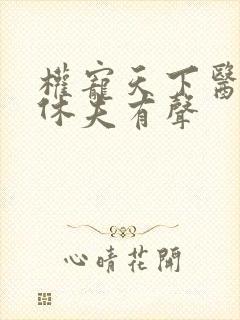 權寵天下醫
休夫有聲
心晴花開